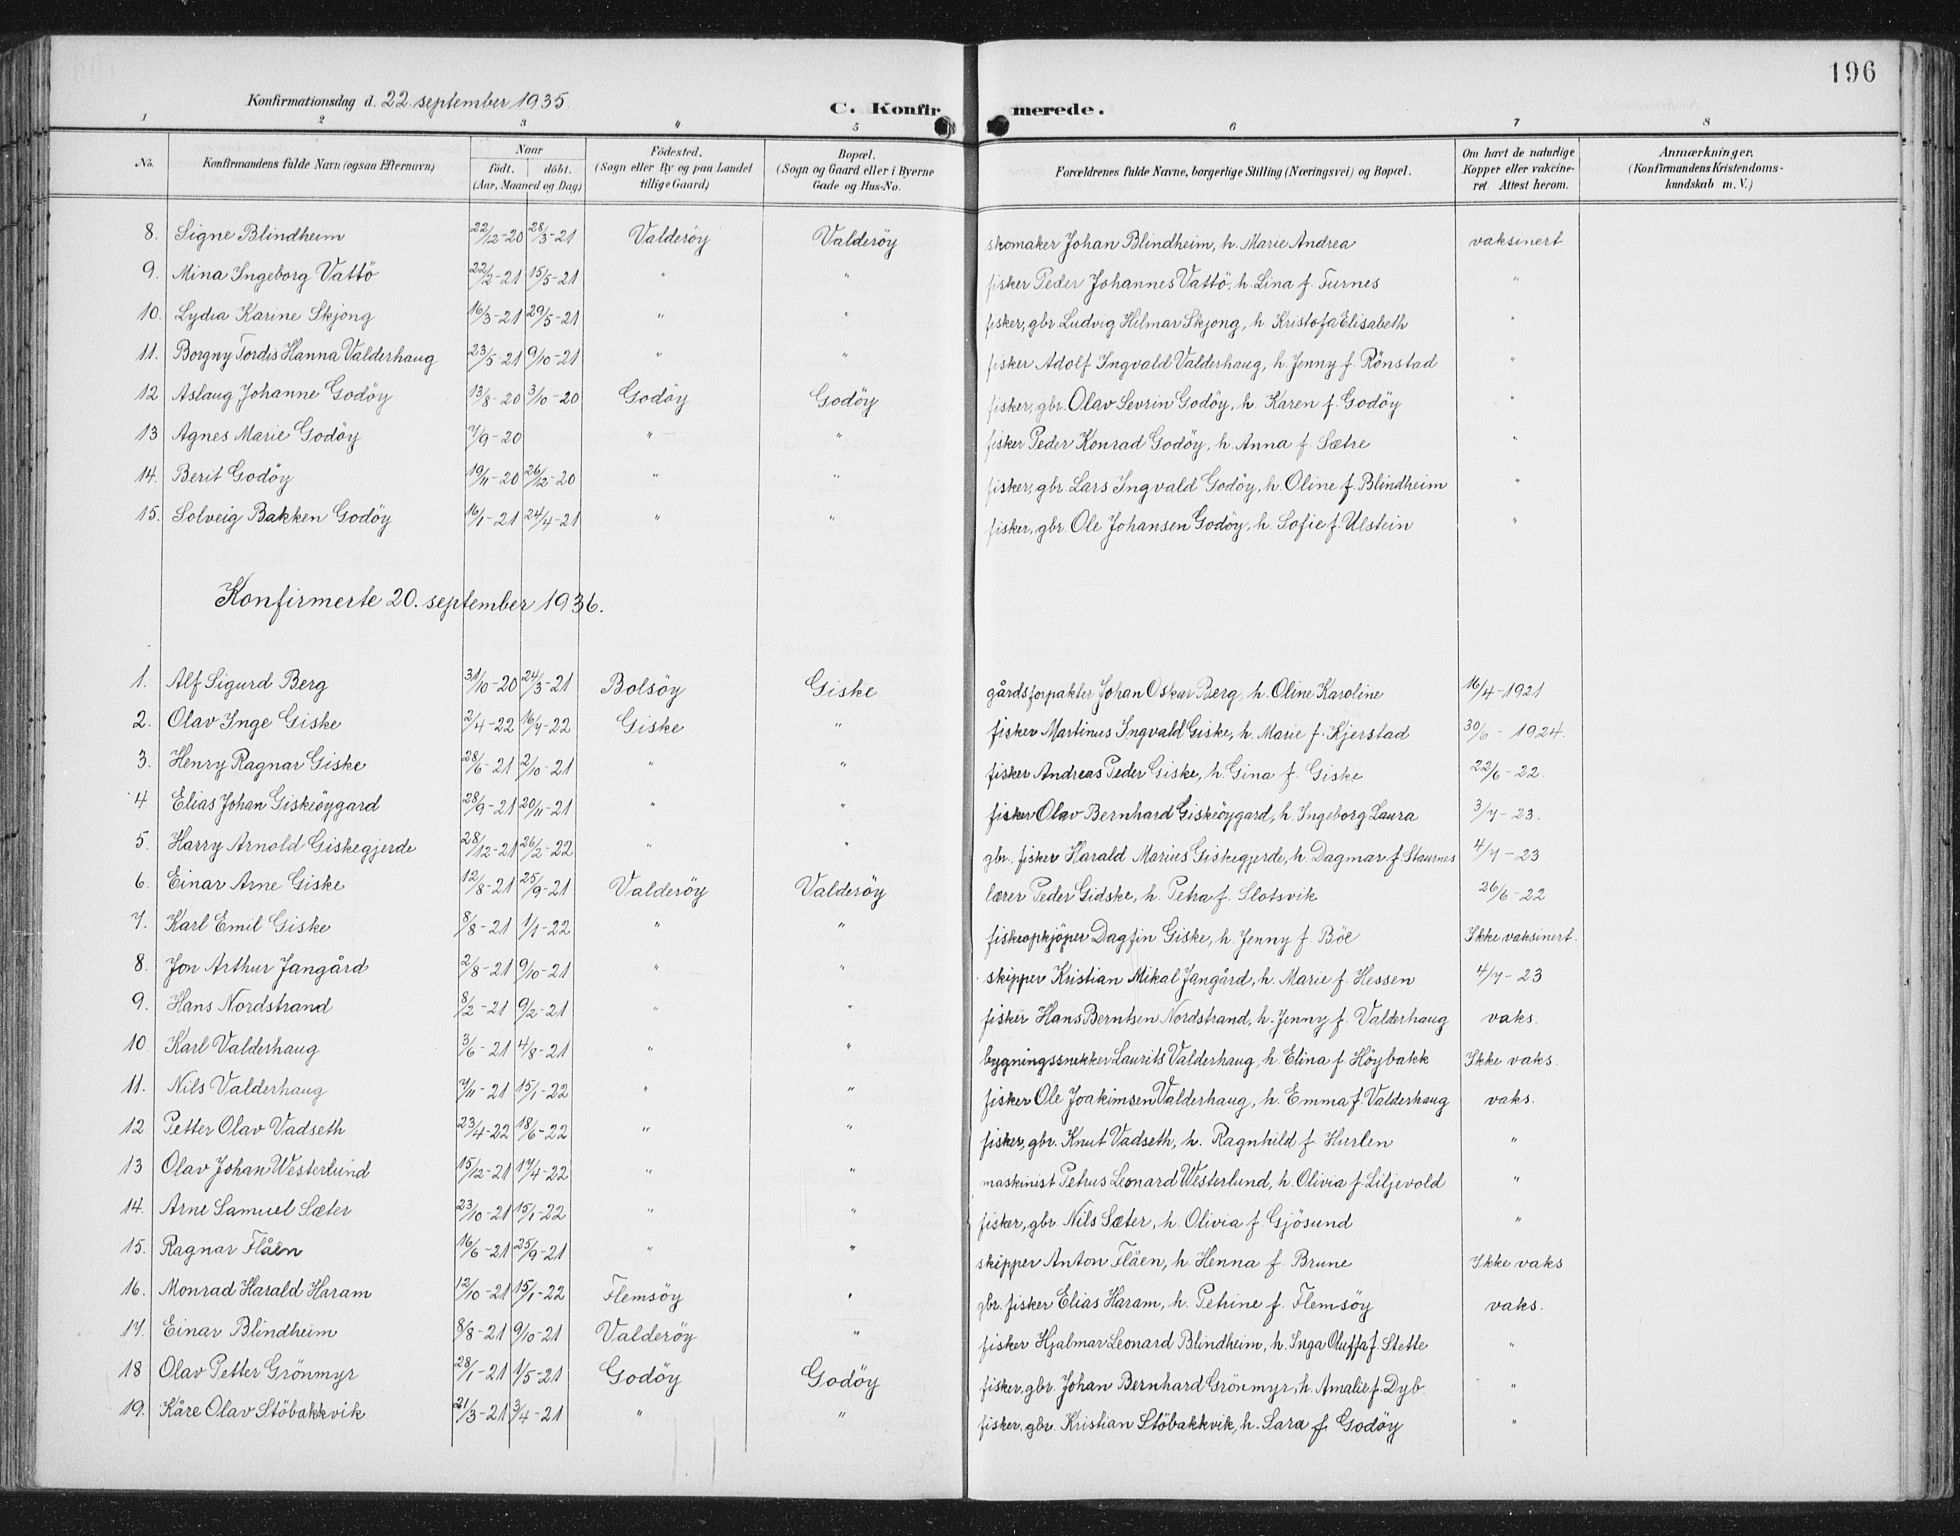 196
Konfirmationsdag d. 22. september 1935
C. Konfirmerede.
1 2 3 4 5 6 7 8
No. Konfirmandens fulde Navn (ogsaa Efternavn) Naar födt. döbt. (Aar, Maaned og Dag) Födested. (Sogn eller By og paa Landet tillige Gaard) Bopæl. (Sogn og Gaard eller i Byerne Gade og Hus-No. Forældrenes fulde Navne, borgerlige Stilling (Næringsvei) og Bopæl. Om havt de naturlige Kopper eller vakcineret. Attest herom. Anmærkninger. (Konfirmandens Kristendomskundskab m. V.)
8. Signe Blindheim 22/12-20 28/3-21 Valderöy Valderöy skomaker Johan Blindheim, h. Marie Andrea vaksinert
9. Mina Ingeborg Vattö 22/2-21 15/5-21 " " fisker Peder Johannes Vattö, h. Lina f. Furnes "
10. Lydia Karine Skjong 16/3-21 29/5-21 " " fisker, gbr. Ludvig Hilmar Skjong, h Kristofa Elisabeth "
11. Borgny Tordis Hanna Valderhaug 23/5-21 9/10-21 " " fisker Adolf Ingvald Valderhaug, h. Jenny f. Rönstad "
12 Aslaug Johanne Godöy 13/8-20 3/10-20 Godöy Godöy fisker, gbr. Olav Sevrin Godöy, h. Karen f. Godöy "
13 Agnes Marie Godöy 7/9-20 " " fisker Peder Konrad Godöy, h. Anna f. Sætre "
14. Berit Godöy 19/11-20 26/12-20 " " fisker, gbr. Lars Ingvald Godöy, h. Oline f. Blindheim "
15. Solveig Bakken Godöy 16/1-21 24/4-21 " " fisker, gbr. Ole Johansen Godöy, h. Sofie f. Ulstein "
Konfirmerte 20. september 1936.
1. Alf Sigurd Berg 31/10-20 24/3-21 Bolsöy Giske gårdsforpakter Johan Oskar Berg, h. Oline Karoline 16/4-1921
2. Olav Inge Giske 2/4-22 16/7-22 Giske " fisker Martinus Ingvald Giske, h. Marie f. Kjerstad 30/6-1924.
3. Henry Ragnar Giske 28/6-21 2/10-21 " " fisker Andreas Peder Giske, h. Gina f. Giske 22/6-22.
4 Elias Johan Giskeöygard 28/9-21 20/11-21 " " fisker Olav Bernhard Giskeöygard, h. Ingeborg Laura 3/7-23.
5. Harry Arnold Giskegjerde 28/12-21 26/2-22 " " gbr. fisker Harald Marius Giskegjerde, h. Dagmar f. Staurnes 4/7-23
6. Einar Arne Giske 12/8-21 25/9-21 Valderöy Valderöy lærer Peder Gidske, h. Petra f. Slotsvik 26/6-22
7. Karl Emil Giske 8/8-21 1/1-22 " " fiskeopkjöper Dagfin Giske, h. Jenny f. Böe Ikke vaksinert.
8. Jon Arthur Jangård 2/8-21 9/10-21 " " skipper Kristian Mikal Jangård, h. Marie f. Hessen 4/7-23
9. Hans Nordstrand 8/2-21 9/2-21 " " fisker Hans Berntsen Nordstrand, h. Jenny f. Valderhaug vaks.
10. Karl Valderhaug 3/6-21 4/8-21 " " bygningssnekker Laurits Valderhaug, h. Elina f. Höybakk Ikke vaks.
11. Nils Valderhaug 7/11-21 15/1-22 " " fisker Ole Joakimsen Valderhaug, h. Emma f. Valderhaug vaks.
12 Petter Olav Vadseth 23/4-22 18/6-22 " " fisker, gbr. Knut Vadseth, h. Ragnhild f. Hurlen "
13 Olav Johan Westerlund 15/12-21 17/4-22 " " maskinist Petrus Leonard Westerlund, h. Olivia f. Liljevold "
14. Arne Samuel Sæter 23/10-21 15/1-22 " " fisker, gbr Nils Sæter, h. Olivia f. Gjösund "
15. Ragnar Flåen 16/6-21 25/9-21 " " skipper Anton Flåen, h Henna f. Brune Ikke vaks
16. Monrad Harald Haram 12/10-21 15/1-22 Flemsöy " gbr. fisker Elias Haram, h. Petrine f. Flemsöy vaks.
17. Einar Blindheim 8/8-21 9/10-21 Valderöy " fisker Hjalmar Leonard Blindheim, h. Inga Oluffa f. Stette "
18 Olav Petter Grönmyr 28/1-21 1/5-21 Godöy Godöy fisker, gbr. Johan Bernhard Grönmyr, h. Amalie f. Dyb. "
19. Kåre Olav Stöbakkvik 21/3-21 3/4-21 " " fisker, gbr. Kristian Stöbakkvik, h. Sara f. Godöy "